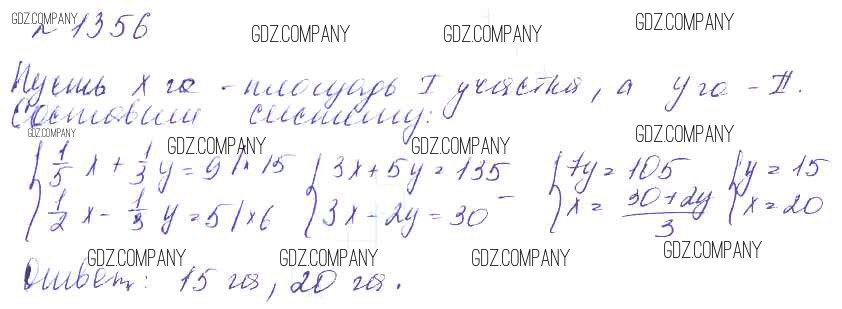 GDZ.COMPANY
№ 1356
GDZ.COMPANY GDZ.COMPANY GDZ.COMPANY
Пусть x га - площадь I участка, а y га - II.
Составим систему:
GDZ.COMPANY GDZ.COMPANY GDZ.COMPANY GDZ.COMPANY
{ 1/5 x + 1/3 y = 9 | × 15 { 3x + 5y = 135 { 7y = 105 { y = 15
{ 1/2 x - 1/3 y = 5 | × 6 { 3x - 2y = 30 - { x = (30 + 2y)/3 { x = 20
GDZ.COMPANY GDZ.COMPANY GDZ.COMPANY GDZ.COMPANY
Ответ: 15 га, 20 га.